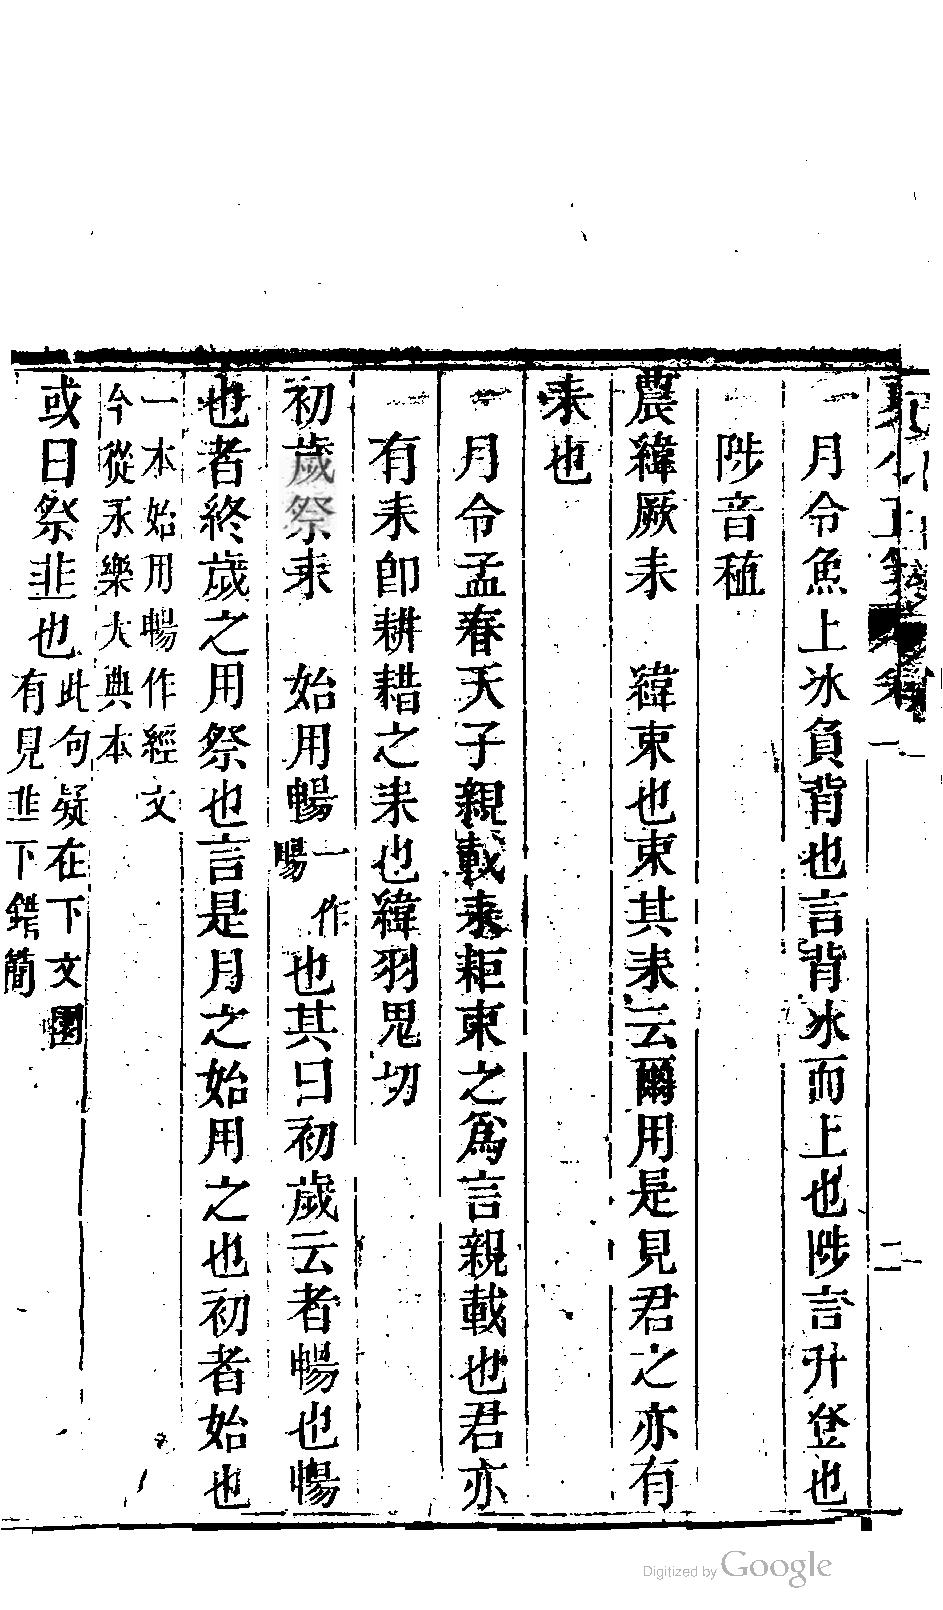 月令魚上冰負背也言背冰而上也陟言升登也
陟音稙
農緯厥耒　緯束也束其耒云爾用是見君之亦有
耒也
月令孟春天子親載耒耟束之為言親載也君亦
有耒卽耕耤之耒也緯羽鬼切
初歲祭耒　始用暢一作暘也其曰初歲云者暢也暢
也者終歲之用祭也言是月之始用之也初者始也
一本始用暢作經文
今從永樂大典本
或曰祭韭也此句疑在下文囿
有見韭下錯簡
二
Digitized by Google